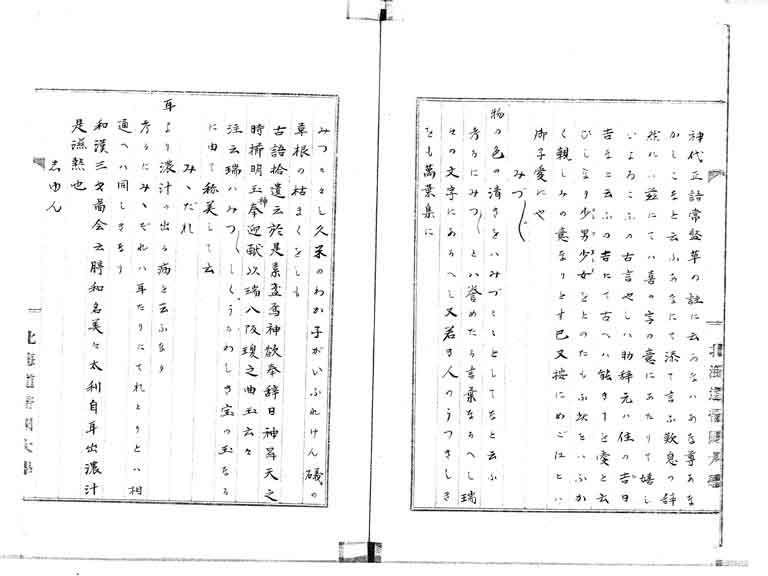 神代正語常盤草の註に云あなハあな尊あな
かしこなと云ふあなにて添て言ふ歎息の辞
然ハ玆にてハ喜の字の意にあたりて嬉し
いよろこふの古言やしハ助辞元ハ住の吉日
吉なと云ふの吉にて古へハ能きーを愛と云
ひしなり少男少女をとのたもふ如をハいふか
く親しみの意なりとす已又按にめごにとい
御子愛にや
みづし
物の色の清きをハみづ〳〵としてなと云ふ
考るにみつしとハ誉めたる言葉なるへし瑞
々の文字にあるへし又若き人のうつきしき
をも萬葉集に
みつ々々し久米のわか子がいふれけん礒の
草根の枯まくをしも
古語拾遺云於是素盞烏神欲奉辞日神昇天之
時櫛明玉神奉迎献以瑞八阪瓊之曲玉云々
注云瑞ハみつしくうるわしき宝の玉なる
に由て称美して云
みゝだれ
耳より濃汁の出る病と云ふなり
考るにみゝだれハ耳たりにてれとりとハ相
通へハ同しきなり
和漢三才圖会云聤和名美々太利自耳出濃汁
是濕熱也
志ゆん
北海道帝國大學
北海道帝國大學